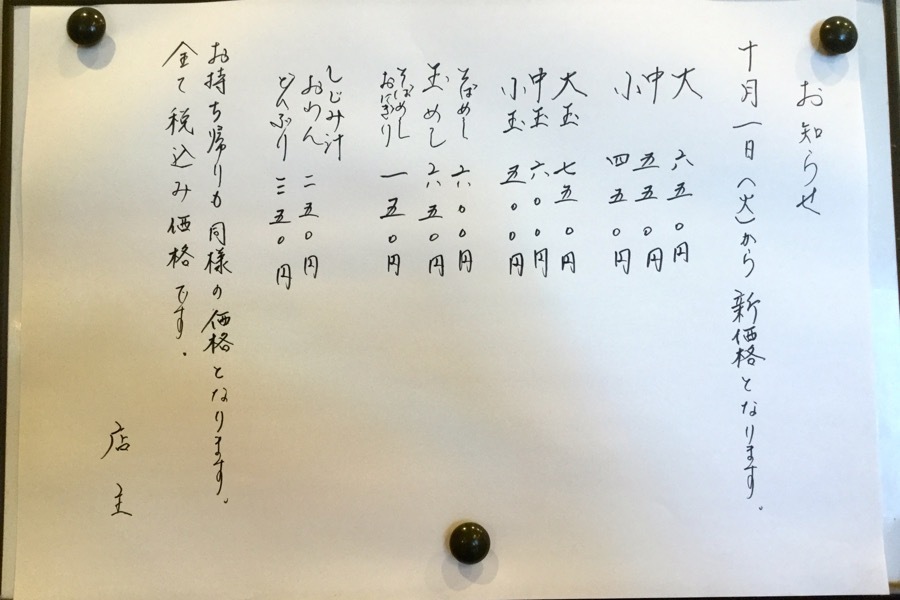 お知らせ
十月一日(火)から新価格となります。
大 六五〇円
中 五五〇円
小 四五〇円
大玉 七五〇円
中玉 六〇〇円
小玉 五〇〇円
そばめし 六〇〇円
玉めし 六五〇円
そばめしおにぎり 一五〇円
しじみ汁
おわん 二五〇円
どんぶり 三五〇円
お持ち帰りも同様の価格となります。
全て税込み価格です.
店主